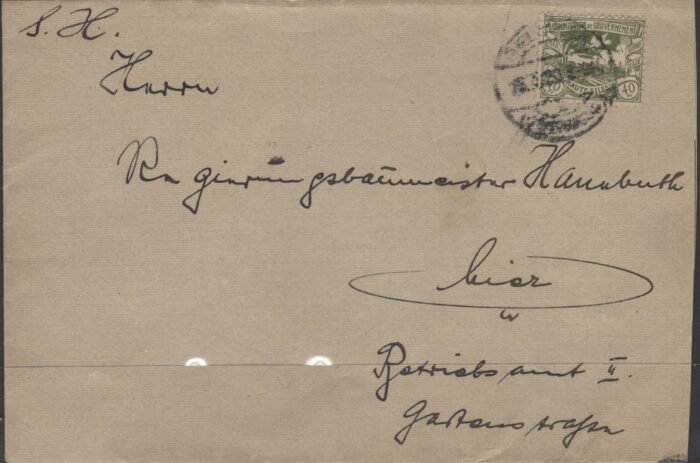 S. H.
Herrn
Regierungsbaumeister Hannebuth
hier
Betriebsamt II.
Gartenstraße
COMMISSION DE GOUVERNEMENT
HAUTE SILESIE
40 40